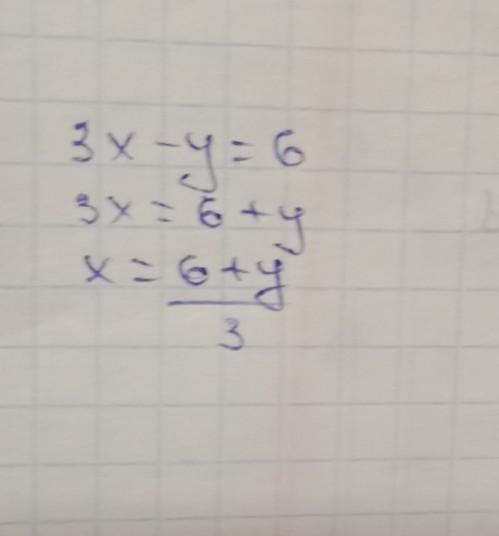 3x - y = 6
3x = 6 + y
x = 6 + y
3